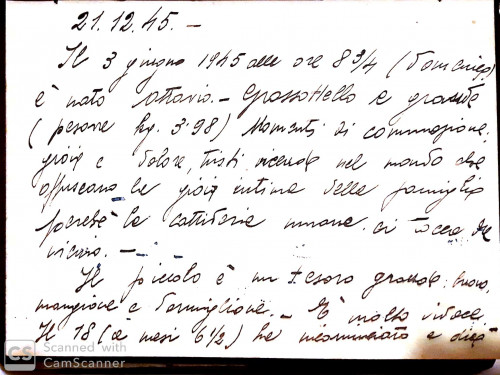 21.12.45. —
Il 3 giugno 1945 alle ore 8 3/4 (domenica)
è nato Ottavio. — Grassottello e grande
(pesava kg. 3.98) Momenti di commozione,
gioia e dolore, tristi vicende nel mondo che
offuscano le gioie intime della famiglia
perché la cattiveria umana ci tocca da
vicino. —
Il piccolo è un tesoro grande: buono,
mangione e dormiglione. — È molto vivace
Il 18 (a mesi 6 1/2) ha incominciato a dire
Scanned with
CamScanner